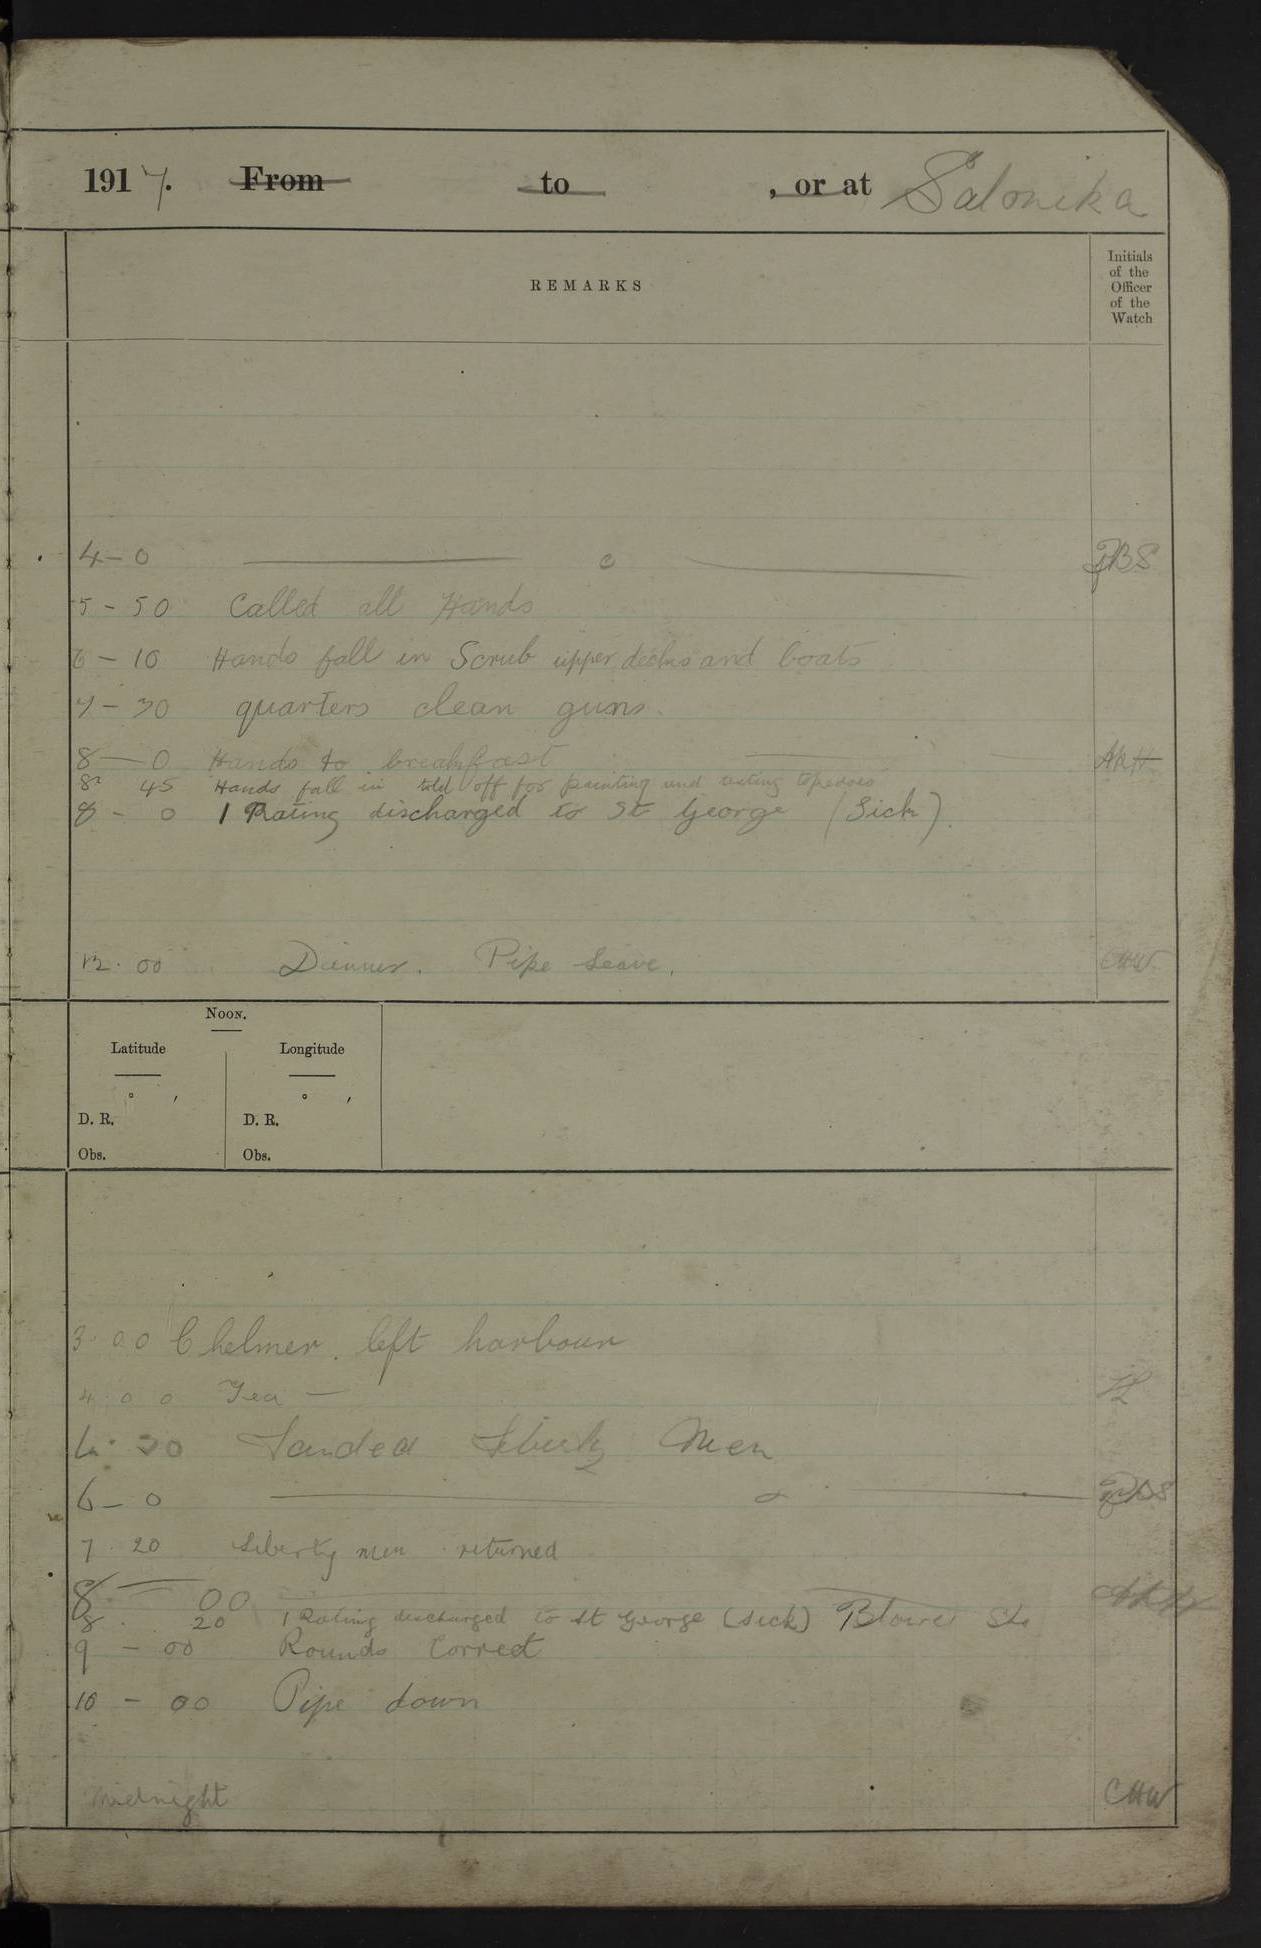 1917. From to , or at Salonika
REMARKS
Initials
of the
Officer
of the
Watch
4-0 FBS
5-50 Called all Hands
6-10 Hands fall in Scrub upper decks and boats
7-30 quarters clean guns.
8-0 Hands to breakfast
8 45 Hands fall in told off for painting and testing topedoes
8-0 1 Rating discharged to St George (Sick).
12.00 Dinner. Pipe Leave. CHW
NOON.
Latitude Longitude
° ′ ° ′
D. R. D. R.
Obs. Obs.
3.00 Chelmer. left harbour
4.00 Tea —
4.30 Landed Liberty Men
6-0
7.20 Liberty men returned
8-00
8.20 1 Rating discharged to St George (sick)
9-00 Rounds Correct
10-00 Pipe down
Midnight CHW